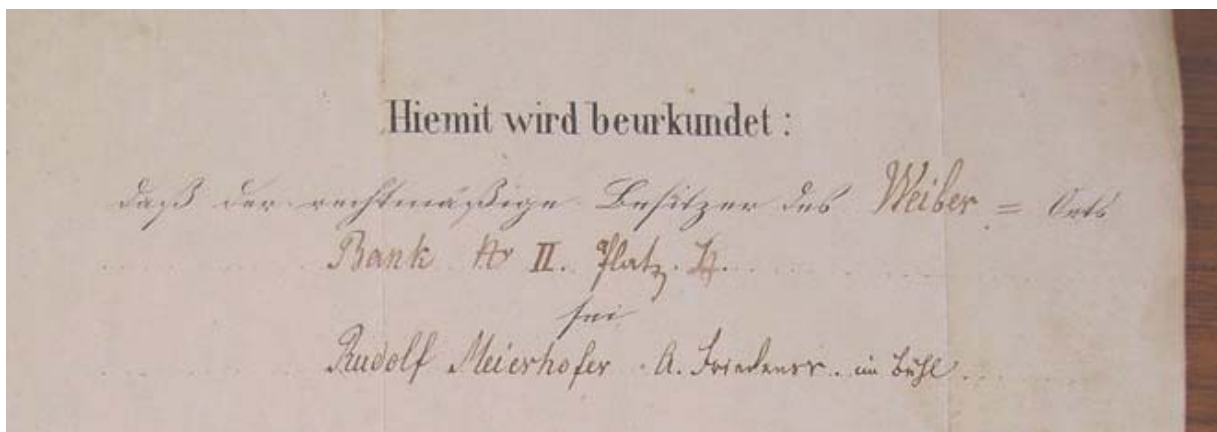 Hiemit wird beurkundet :
daß der rechtmäßige Besitzer des Weiber = Orts
Bank No II. Platz. 4.
sei
Rudolf Meierhofer A. Friedensr. im Bühl